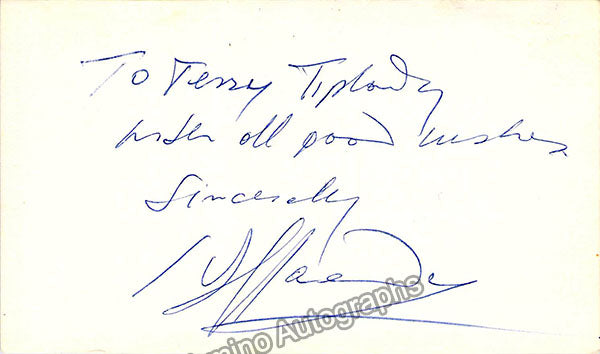 To Terry Tiplady
with all good wishes
Sincerely
mino Autographs